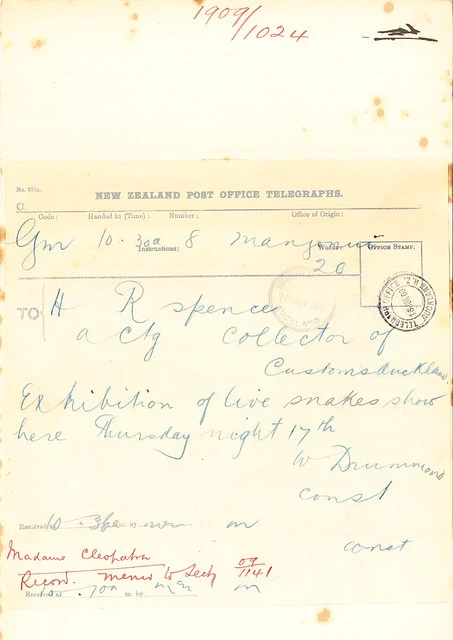 1909/1024
No.
NEW ZEALAND POST OFFICE TELEGRAPHS.
Code: Handed in (Time): Number: Office of Origin:
Gm 10.30a 8 Mangonui
Instructions: Words:
20
OFFICE STAMP.
TO H R Spence
actg Collector of
Customs Auckland
Exhibition of live snakes show
here Thursday night 17th
W Drummond
Const
Received
const
Madame Cleopatra
Record. memo to Secy 09/1141
Received at by